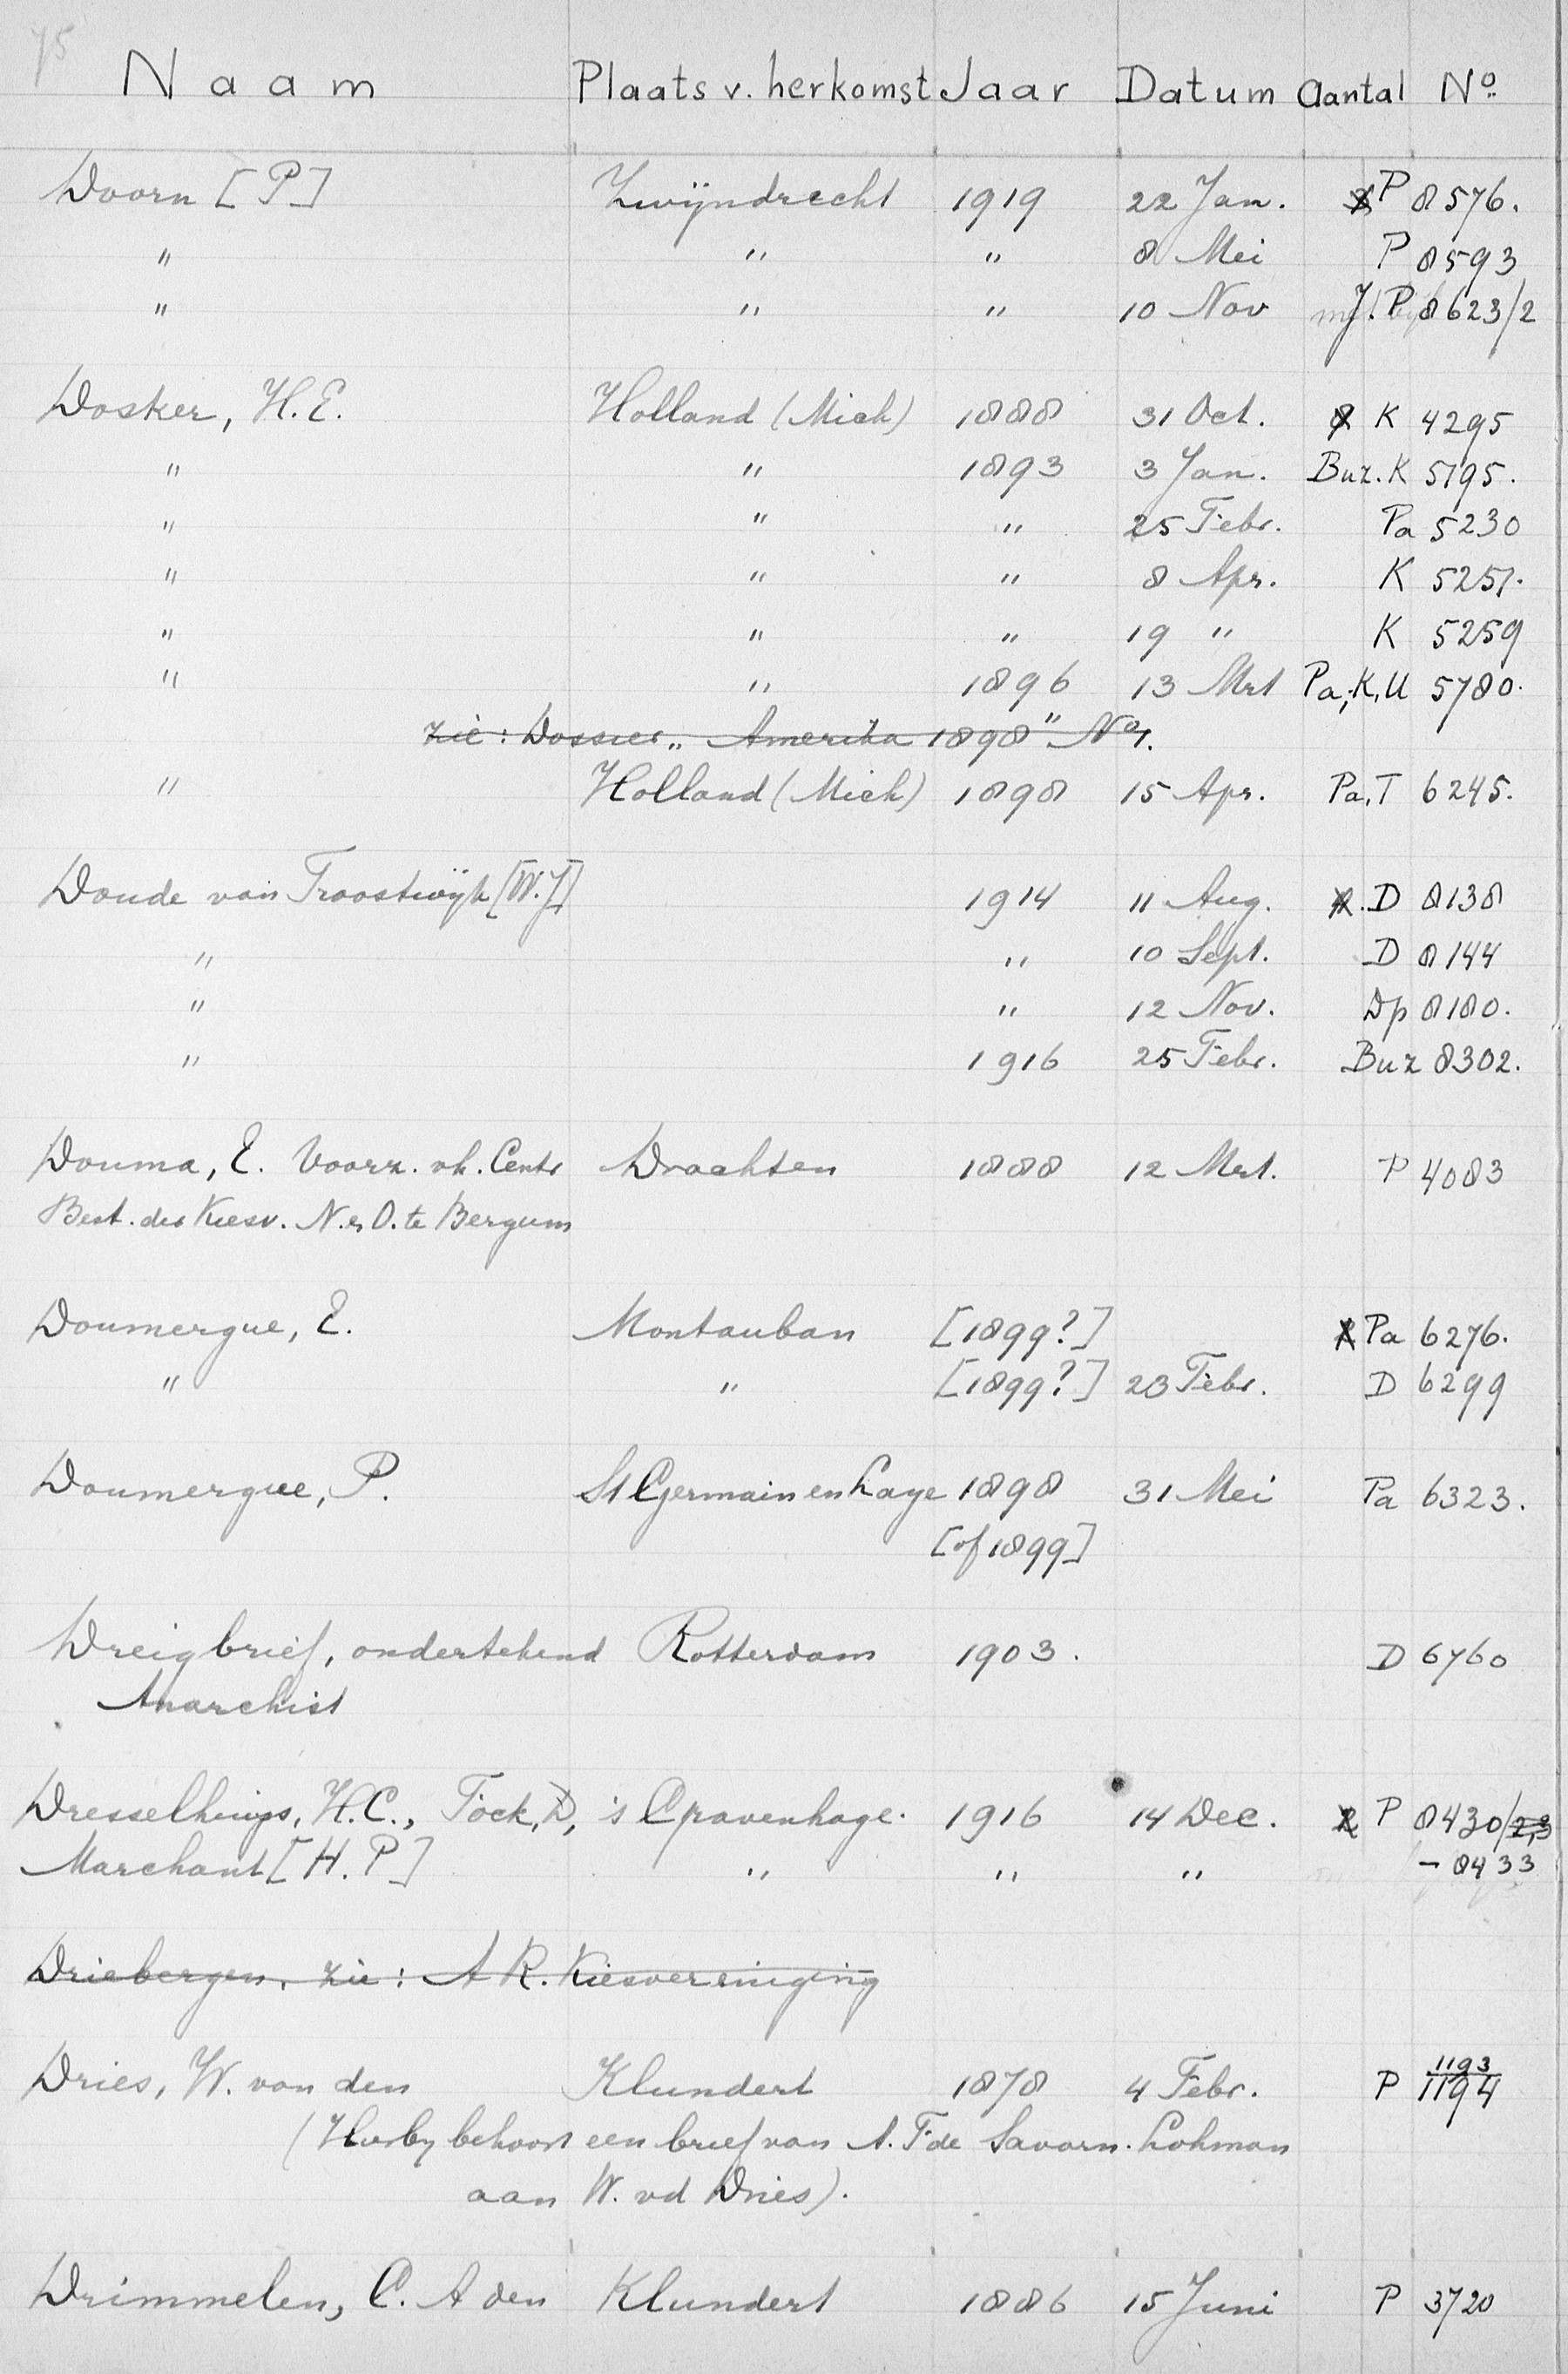 75
Naam Plaats v. herkomst Jaar Datum Aantal No.
Doorn [P] Zwijndrecht 1919 22 Jan. P 8576.
" " " 8 Mei P 8593
" " " 10 Nov J. P 8623/2
Dosker, H.E. Holland (Mich) 1888 31 Oct. K 4295
" " 1893 3 Jan. Buz. K 5195.
" " " 25 Febr. Pa 5230
" " " 8 Apr. K 5251.
" " " 19 " K 5259
" " 1896 13 Mrt Pa, K, U 5780.
zie: Dossier „Amerika 1898" No 1.
" Holland (Mich) 1898 15 Apr. Pa, T 6245.
Doude van Troostwijk [W.J] 1914 11 Aug. D 8138
" " 10 Sept. D 8144
" " 12 Nov. Dp 8180.
" 1916 25 Febr. Buz 8302.
Douma, E. Voorz. vh. Centr Drachten 1888 12 Mrt. P 4083
Best. der Kiesv. N. en O. te Bergum
Doumergue, E. Montauban [1899?] Pa 6276.
" " [1899?] 23 Febr. D 6299
Doumergue, P. St Germain en Laye 1898 31 Mei Pa 6323.
[of 1899]
Dreigbrief, ondertekend Rotterdam 1903. D 6760
Anarchist
Dresselhuys, H.C., Fock, D, 's Gravenhage. 1916 14 Dec. P 8430/2,3
Marchant [H. P] " " " - 8433
Driebergen, zie: A R. Kiesvereniging
Dries, W. van den Klundert 1878 4 Febr. P 1193
1194
(Hierbij behoort een brief van A. F de Savorn. Lohman
aan W. vd Dries).
Drimmelen, C. A den Klundert 1886 15 Juni P 3720